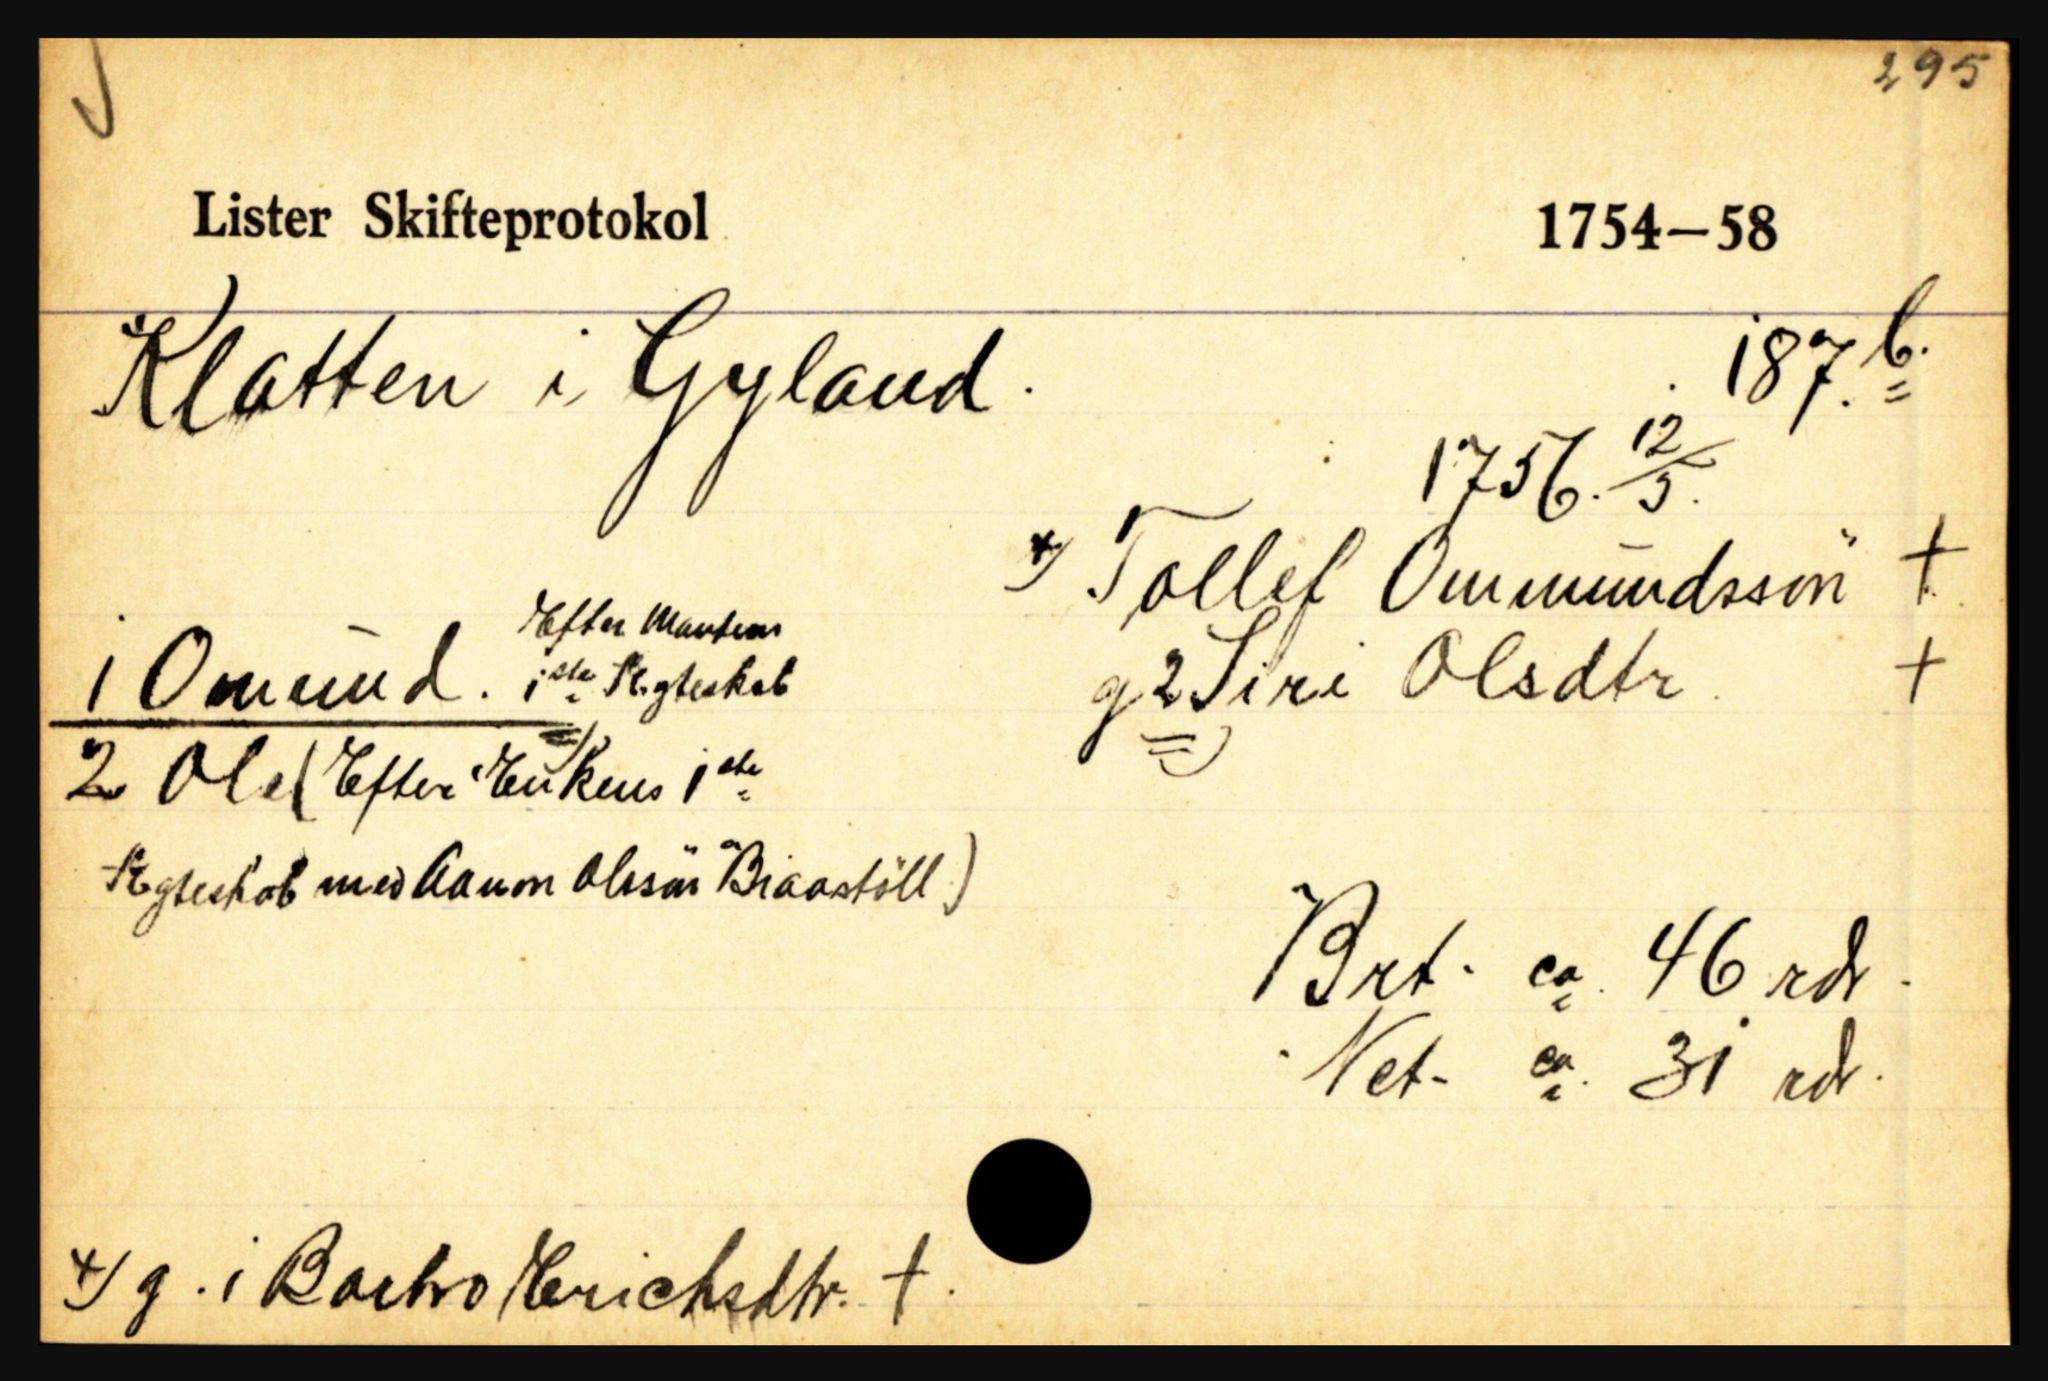 295
Lister Skifteprotokol 1754—58
Klatten i Gyland. 187.b.
1756. 12/5.
+) Tollef Ommundssön +
g 2 Siri Olsdtr +
1 Omund. Efter Mandens
1ste Ægteskab
2 Ole (Efter Enkens 1ste
Ægteskab med Aanon Olssön)
Brt. ca. 46 rdr.
Net. ca. 31 rdr.
+) g. 1 Barbro Erichsdtr. +